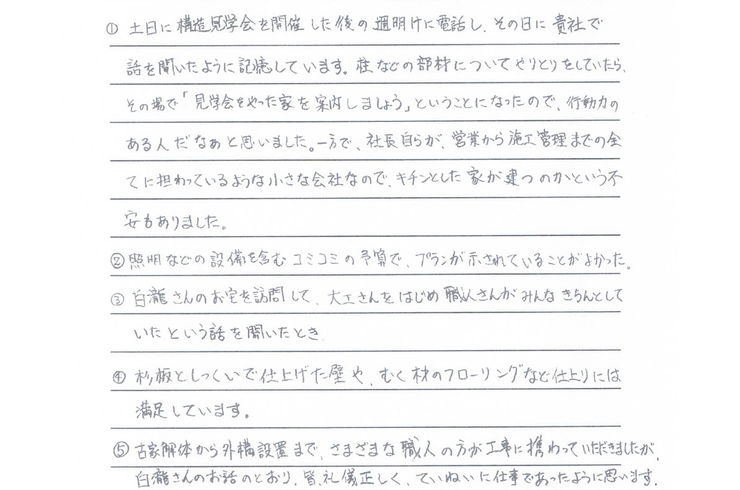 ① 土日に構造見学会を開催した後の週明けに電話し、その日に貴社で
話を聞いたように記憶しています。柱などの部材についてやりとりをしていたら、
その場で「見学会をやった家を案内しましょう」ということになったので、行動力の
ある人だなぁと思いました。一方で、社長自らが、営業から施工管理までの全
てに担わっているような小さな会社なので、キチンとした家が建つのかという不
安もありました。
② 照明などの設備を含むコミコミの予算で、プランが示されていることがよかった。
③ 白瀧さんのお宅を訪問して、大工さんをはじめ職人さんがみんなきちんとして
いたという話を聞いたとき
④ 杉板としっくいで仕上げた壁や、むく材のフローリングなど仕上りには
満足しています。
⑤ 古家解体から外構設置まで、さまざまな職人の方が工事に携わっていただきましたが、
白瀧さんのお話のとおり、皆、礼儀正しく、ていねいに仕事であったように思います。